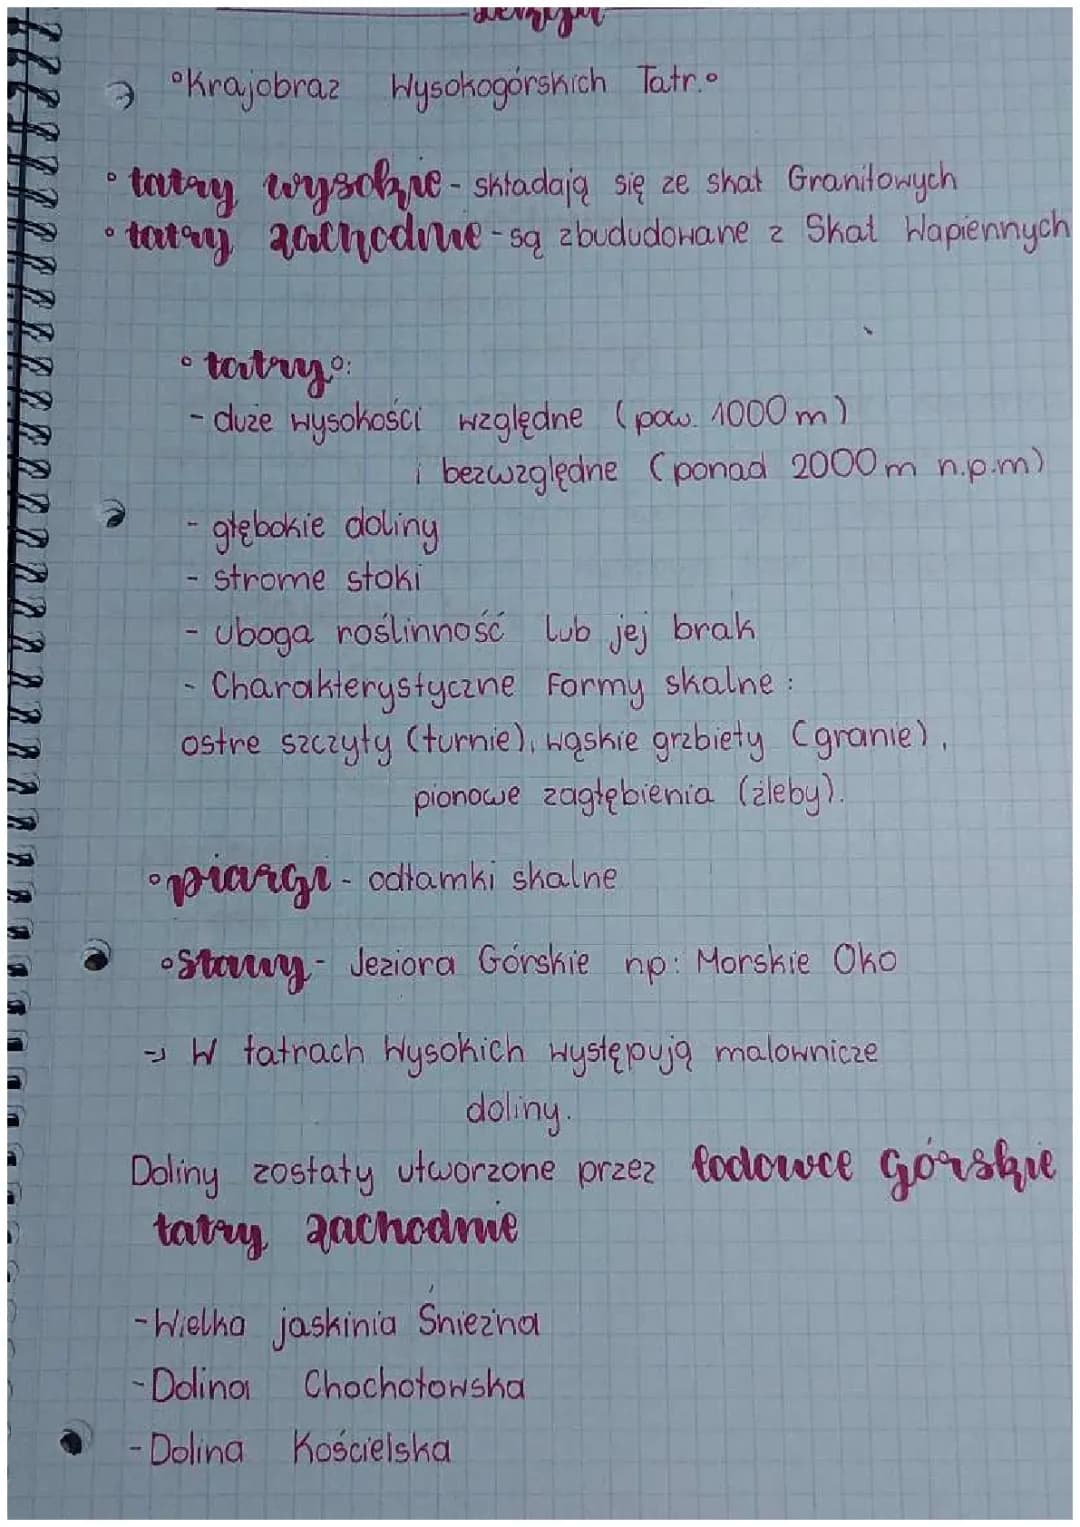 °Krajobraz Wysokogórskich Tatr.°
° tatry wysokie - składają się ze skał Granitowych
° tatry zachodnie - są zbududowane z Skał Wapiennych
° tatry°:
- duże wysokości względne (pow. 1000 m)
i bezwzględne (ponad 2000 m n.p.m)
- głębokie doliny
- strome stoki
- uboga roślinność lub jej brak
- Charakterystyczne Formy skalne :
ostre szczyty (turnie), wąskie grzbiety (granie),
pionowe zagłębienia (żleby).
°piargi - odłamki skalne
°Stawy - Jeziora Górskie np: Morskie Oko
→ W tatrach Wysokich występują malownicze
doliny.
Doliny zostały utworzone przez lodowce górskie
tatry zachodnie
- Wielka jaskinia Śnieżna
- Dolina Chochołowska
- Dolina Kościelska